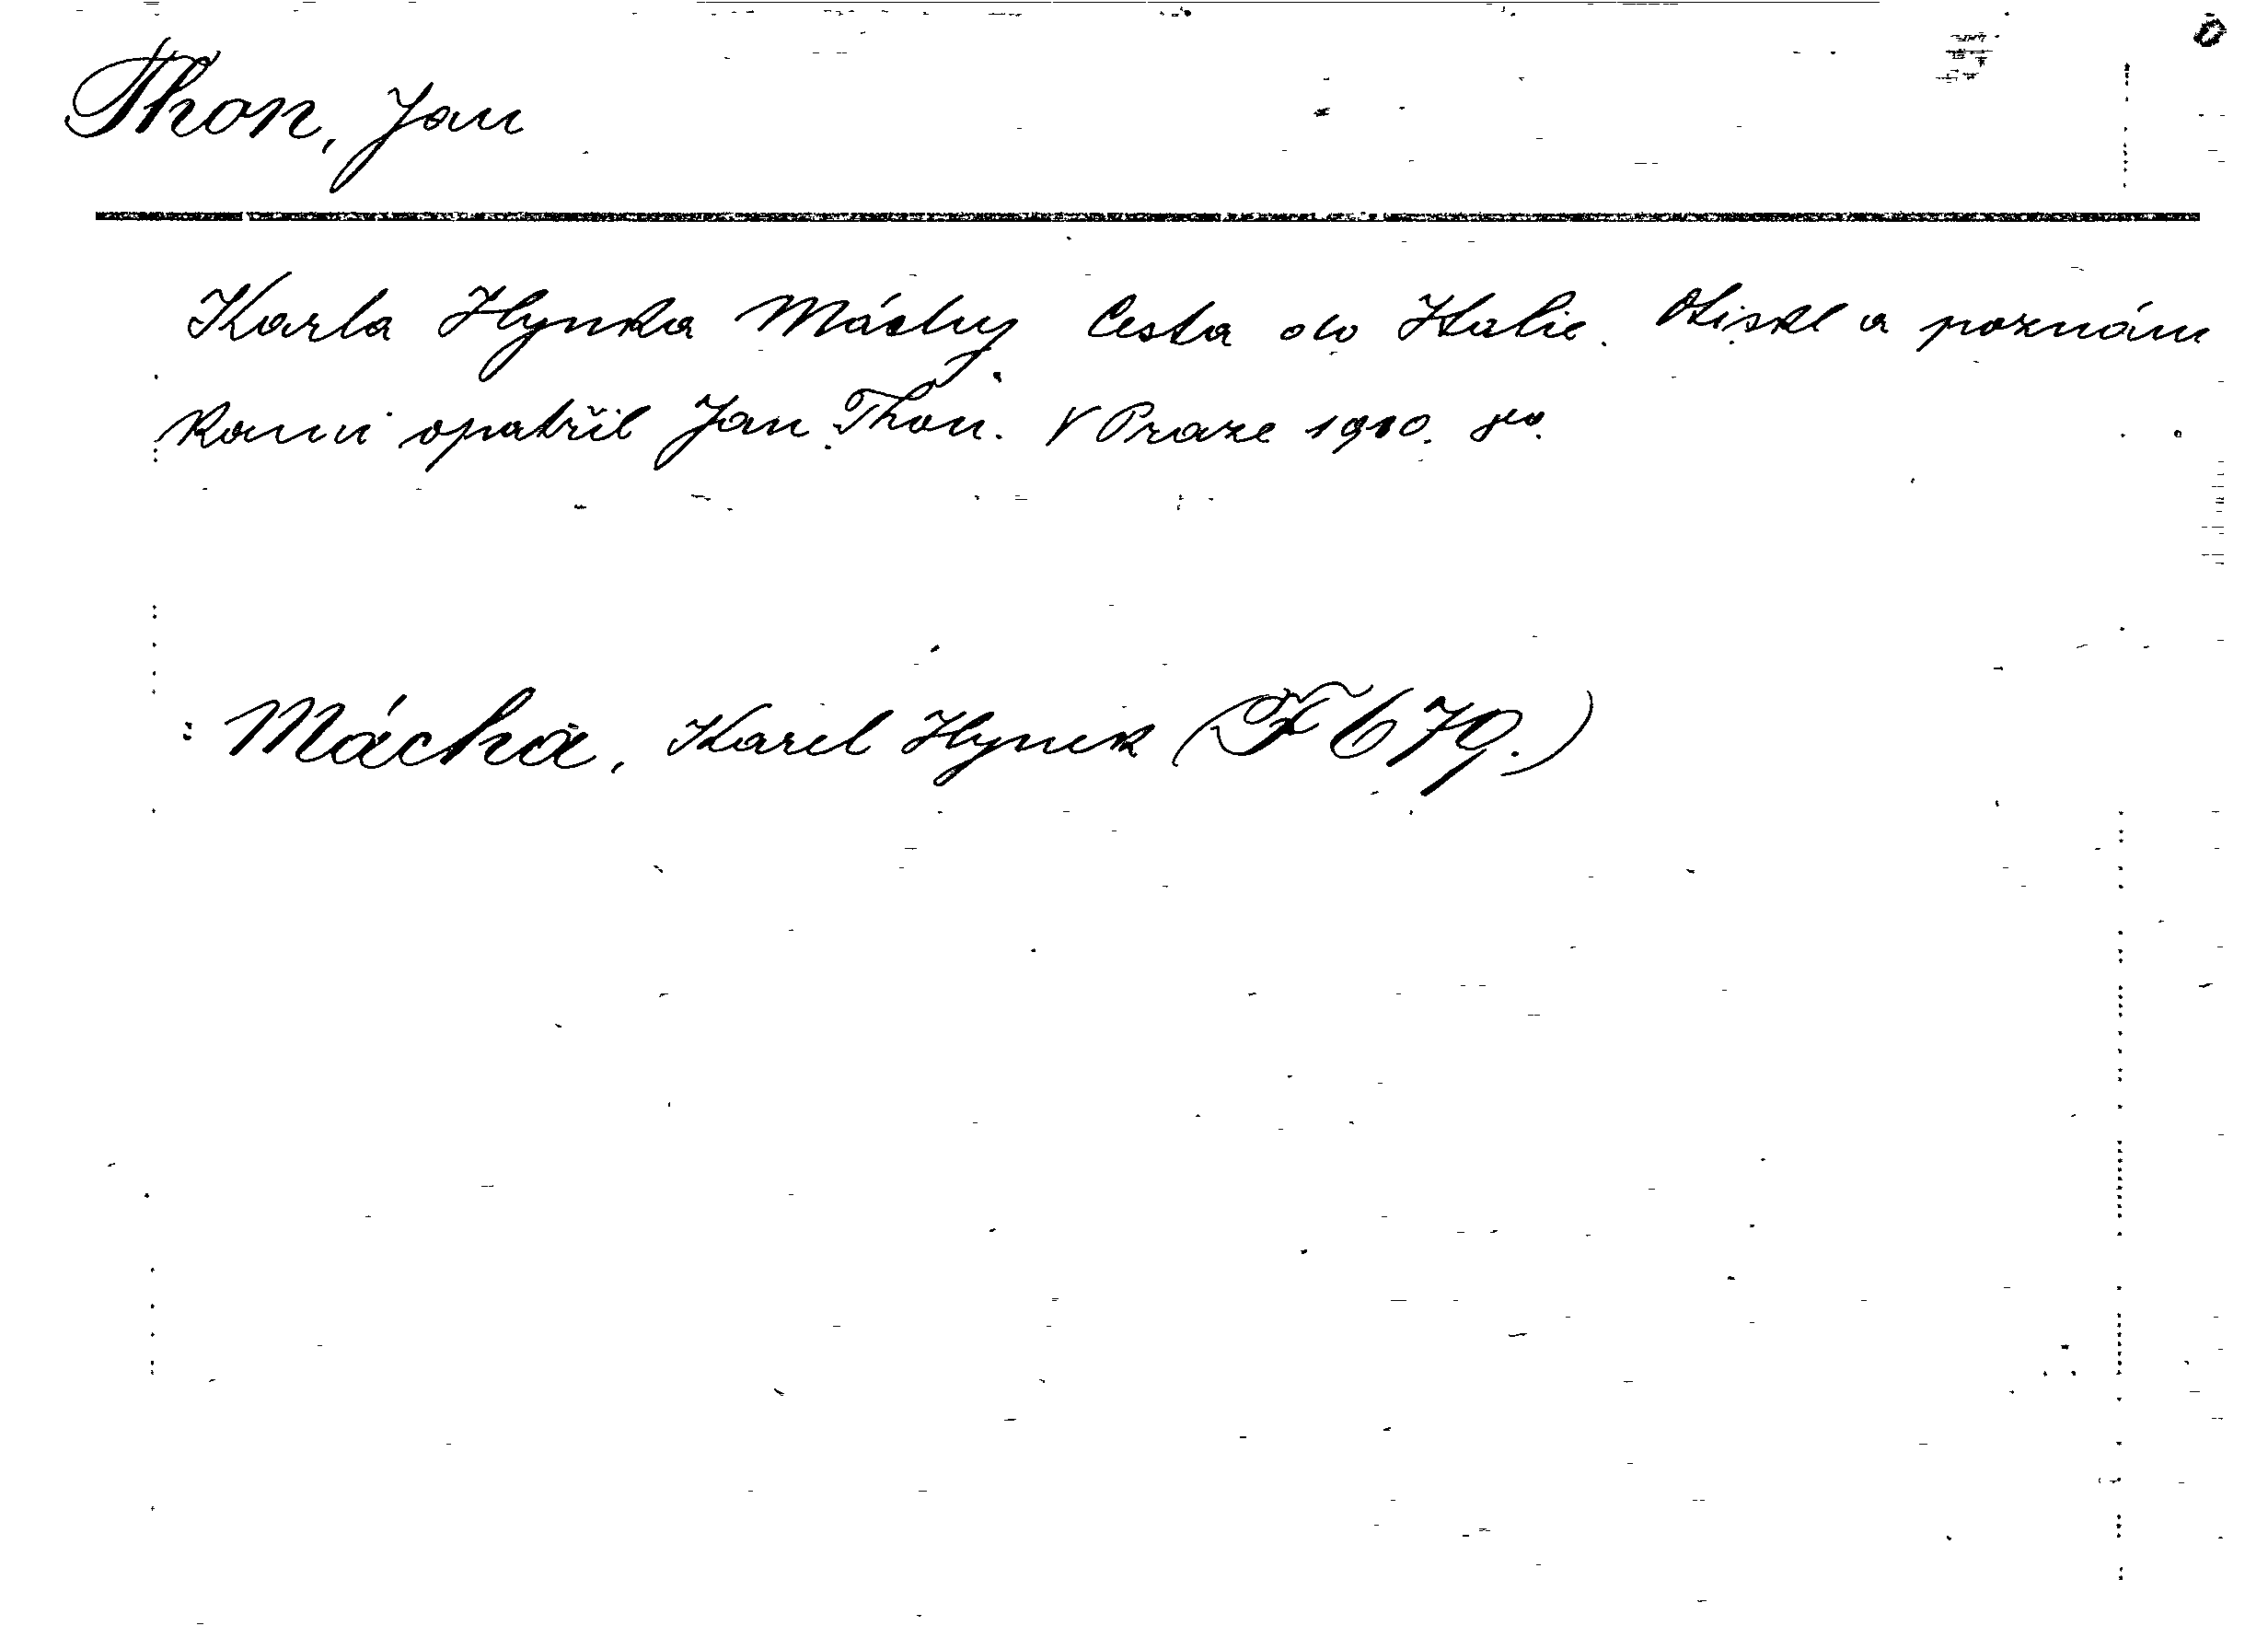 Thon, Jan
Karla Hynka Máchy Cesta do Italie. Otiskl a poznám
kami opatřil Jan Thon. V Praze 1910. 8º.
: Mácha, Karel Hynek (F 679.)